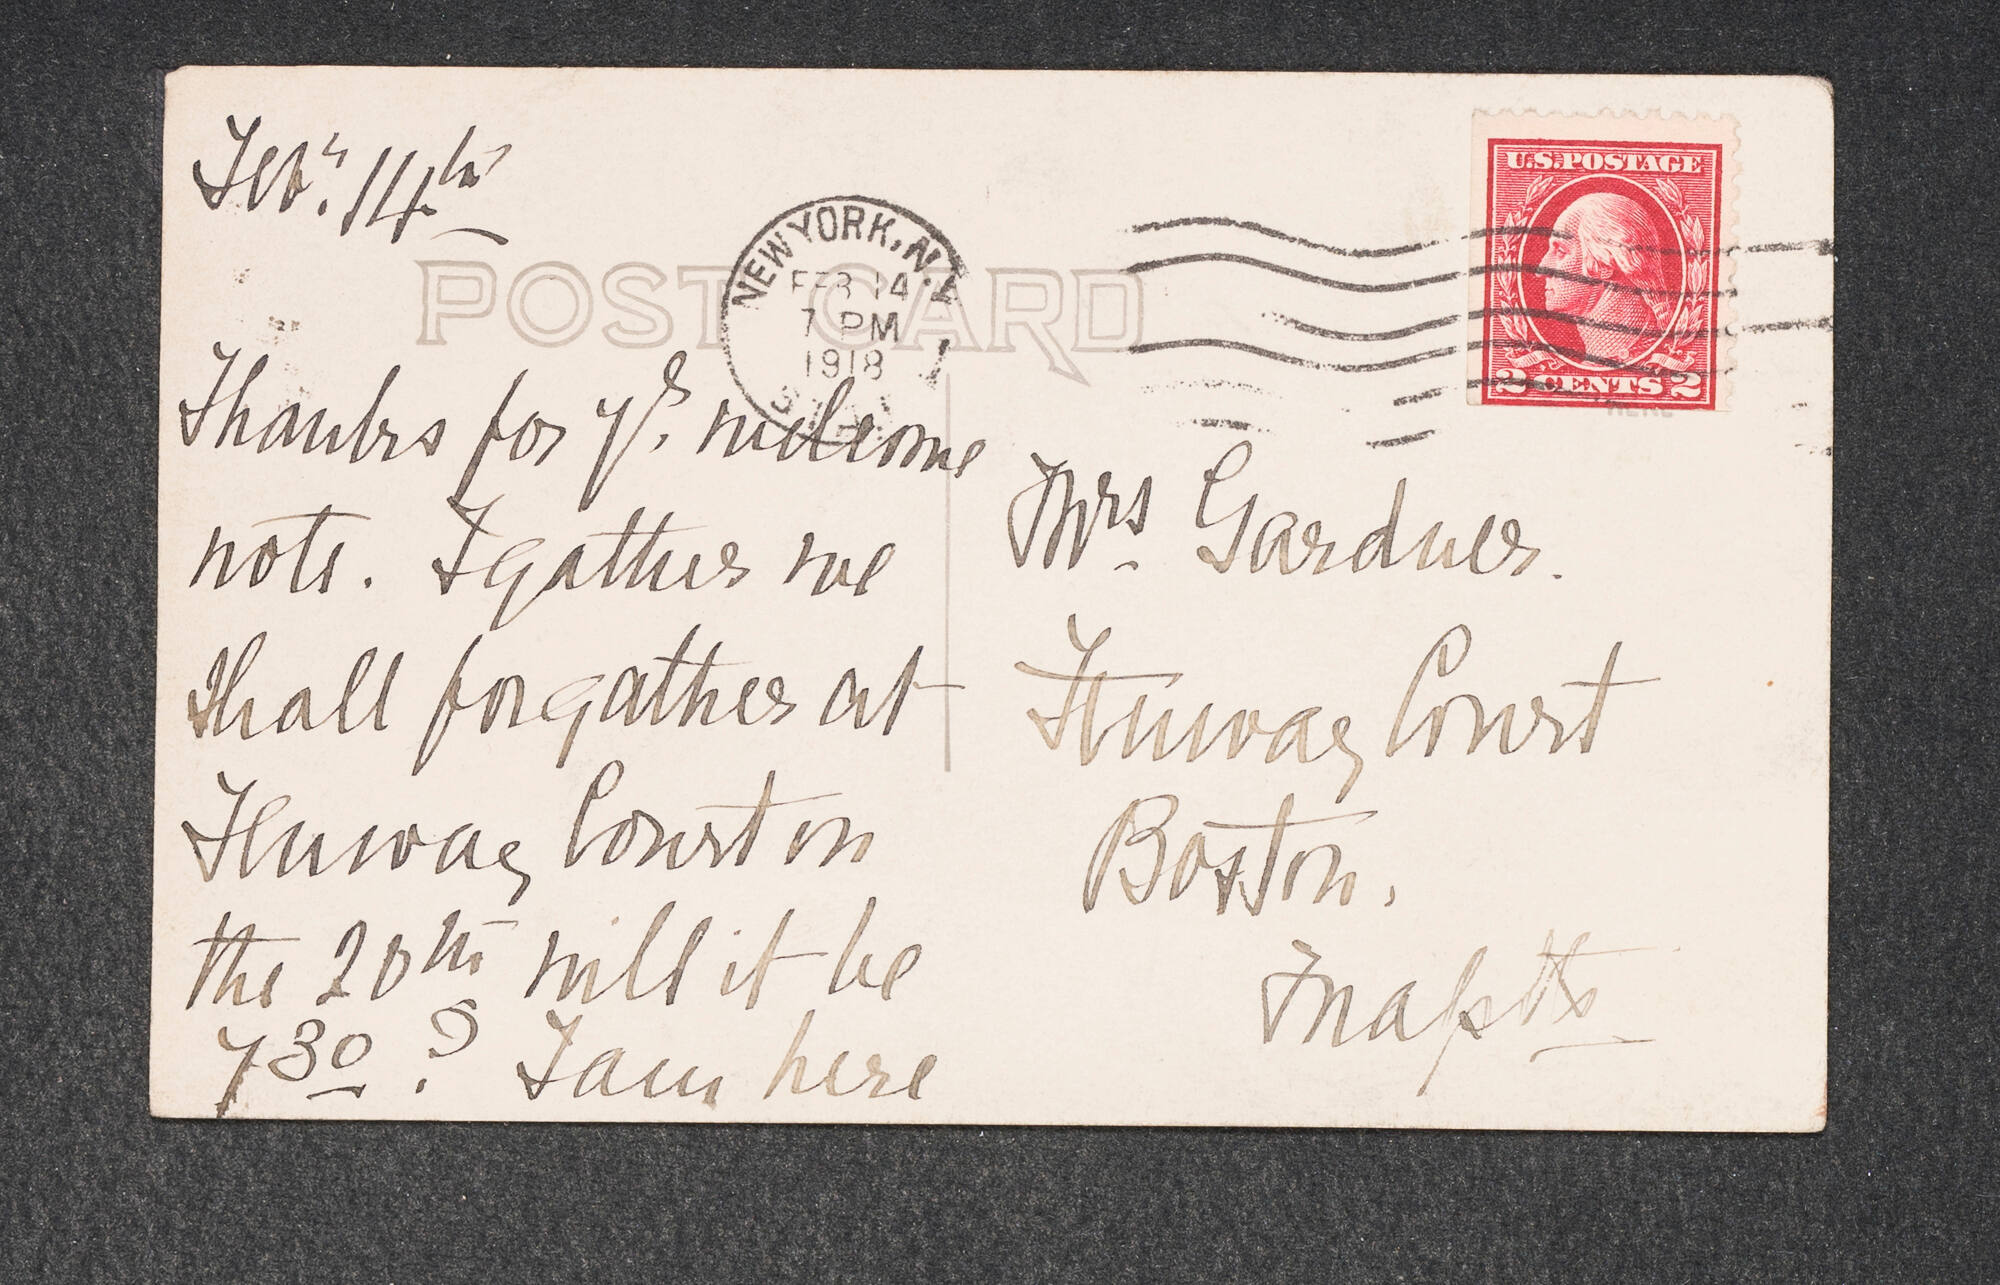 Feby. 14th
POST CARD
NEW YORK, N.Y.
FEB 14
7 PM
1918
U.S. POSTAGE
2 CENTS 2
HERE
Thanks for yr. welcome
note. I gather we
shall forgather at
Fenway Court on
the 20th will it be
7 30 ? I am here
Mrs Gardner.
Fenway Court
Boston.
Massts